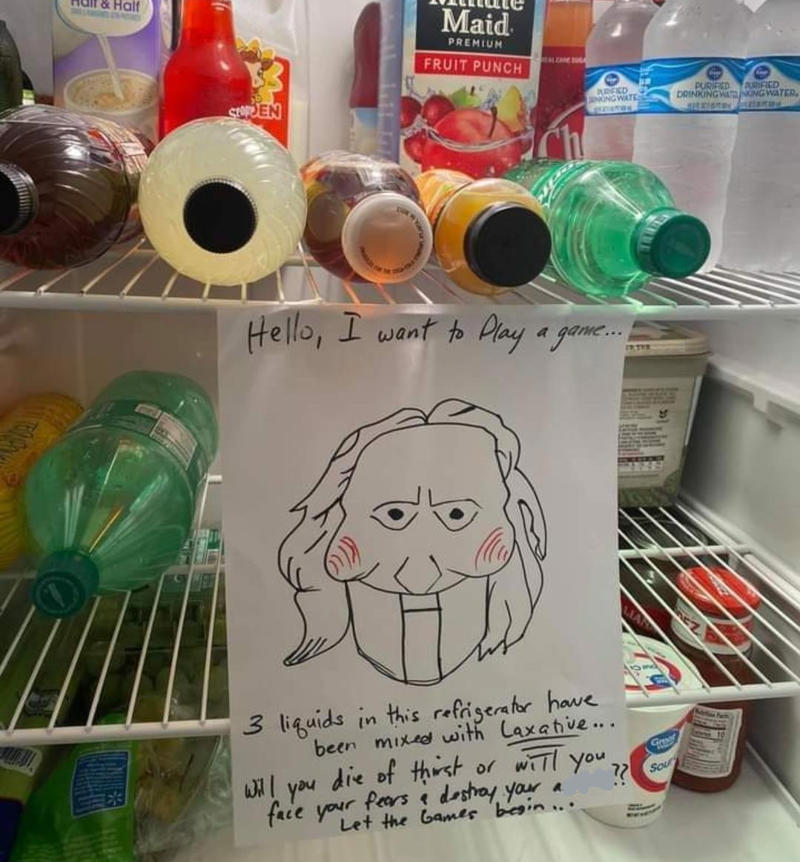 Half & Half
Minute
Maid
PREMIUM
FRUIT PUNCH
REAL CANE SUGAR
PURIFIED
DRINKING WATER
PURIFIED
DRINKING WATER
PURIFIED
DRINKING WATER
Hello, I want to Play a game...
3 liquids in this refrigerator have
been mixed with Laxative...
Will you die of thirst or will you
face your fears & destroy your a ??
Let the Games begin...
Great
Value
Sour
Nutrition Facts
10